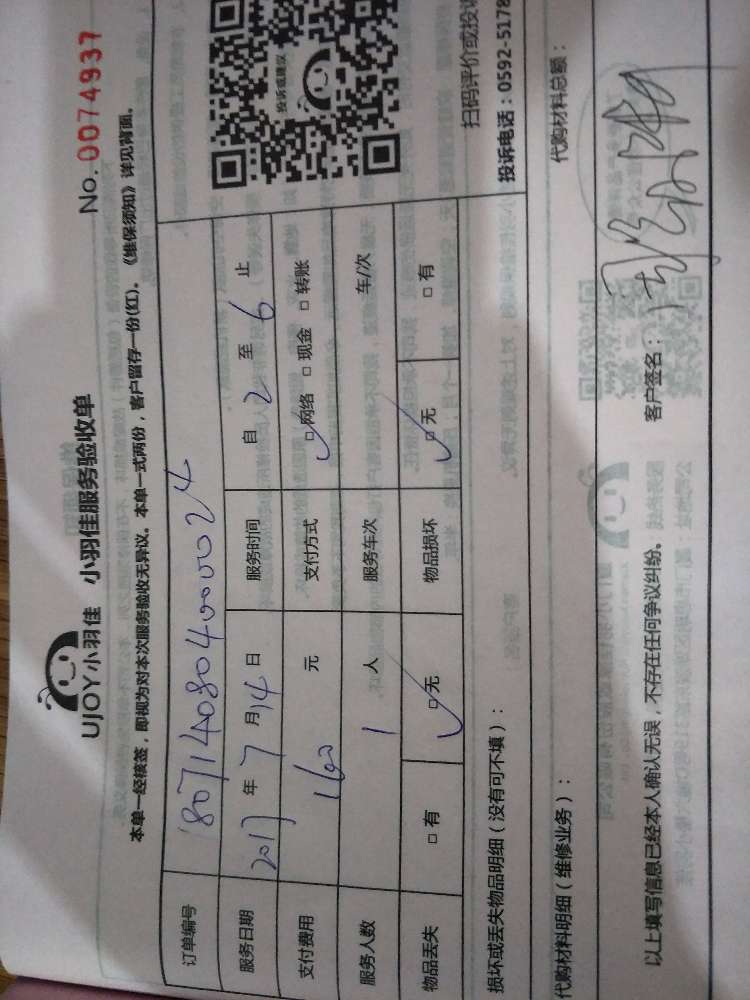 UJOY小羽佳 小羽佳服务验收单
No. 0074937
本单一经核签，即视为对本次服务验收无异议。本单一式两份，客户留存一份(红)。《维保须知》详见背面。
订单编号 180714080400024
服务日期 2017 年 7 月 14 日 服务时间 自 2 至 6 止
支付费用 160 元 支付方式 □网络 □现金 □转账
服务人数 1 人 服务车次 车/次
物品丢失 □有 □无 物品损坏 □无 □有
投诉或建议
扫码评价或投诉
投诉电话：0592-5178
损坏或丢失物品明细（没有可不填）：
代购材料明细（维修业务）： 代购材料总额：
以上填写信息已经本人确认无误，不存在任何争议纠纷。 客户签名：